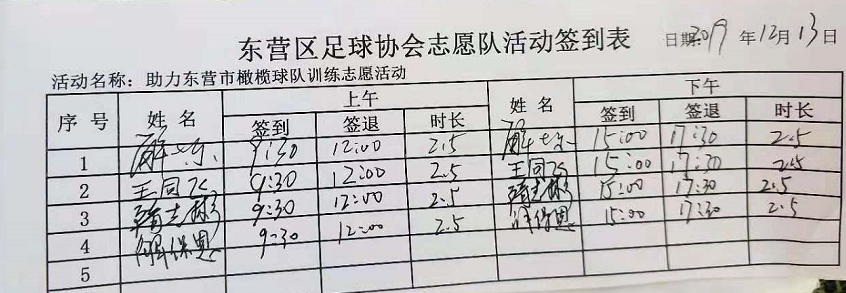 东营区足球协会志愿队活动签到表 日期2019年12月13日
活动名称：助力东营市橄榄球队训练志愿活动
序号 姓名 上午 姓名 下午
签到 签退 时长 签到 签退 时长
1 9:30 12:00 2.5 15:00 17:30 2.5
2 王同飞 9:30 12:00 2.5 王同飞 15:00 17:30 2.5
3 9:30 12:00 2.5 15:00 17:30 2.5
4 解保恩 9:30 12:00 2.5 15:00 17:30 2.5
5